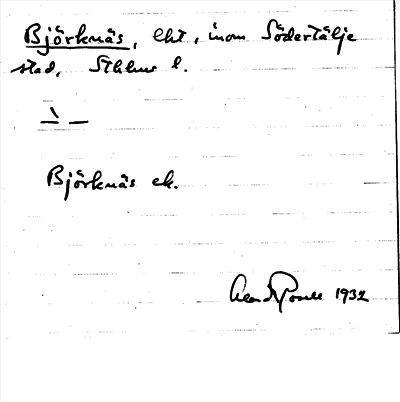 Björknäs, lht, inom Södertälje
stad, Sthlms l.
Björknäs ek.
1932